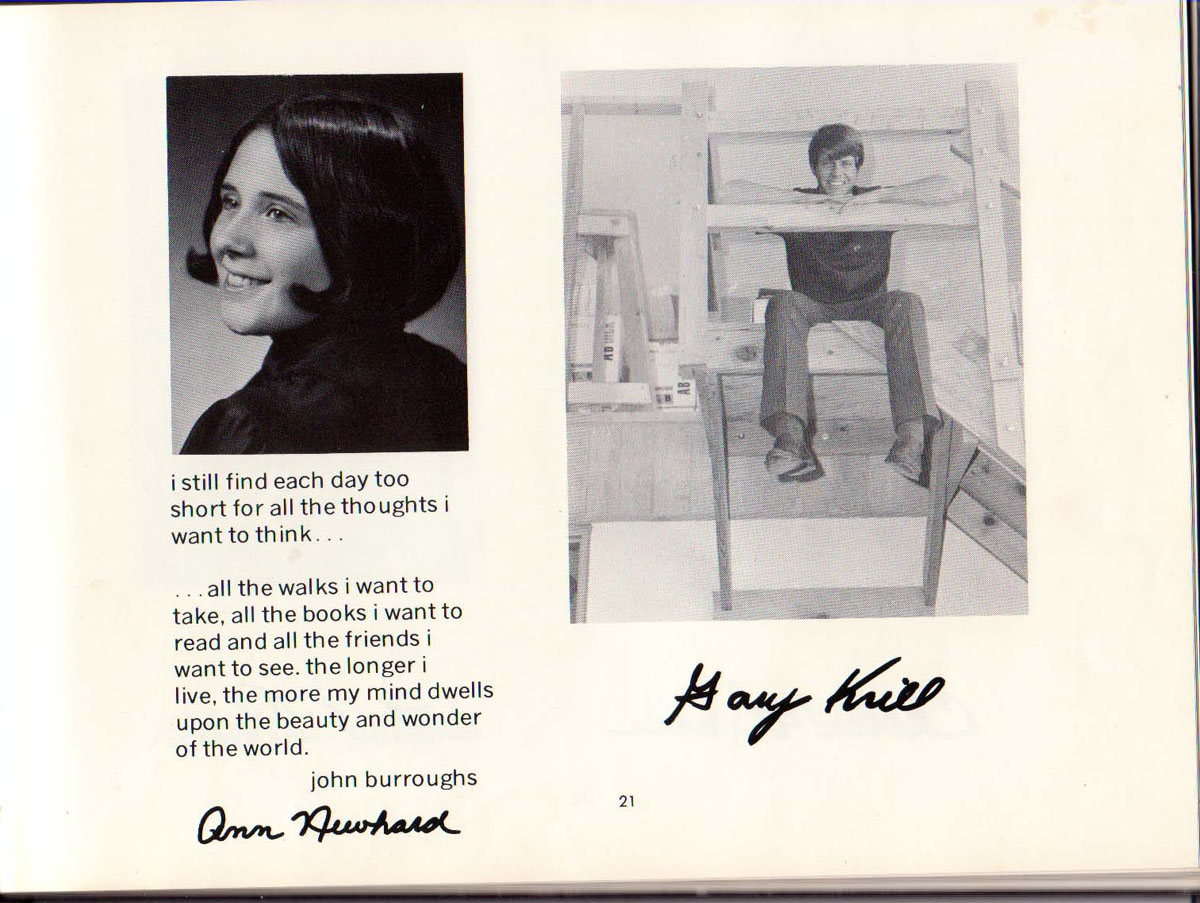 i still find each day too
short for all the thoughts i
want to think...
...all the walks i want to
take, all the books i want to
read and all the friends i
want to see. the longer i
live, the more my mind dwells
upon the beauty and wonder
of the world.
john burroughs
Ann Newhard
AB
Gary Krill
21